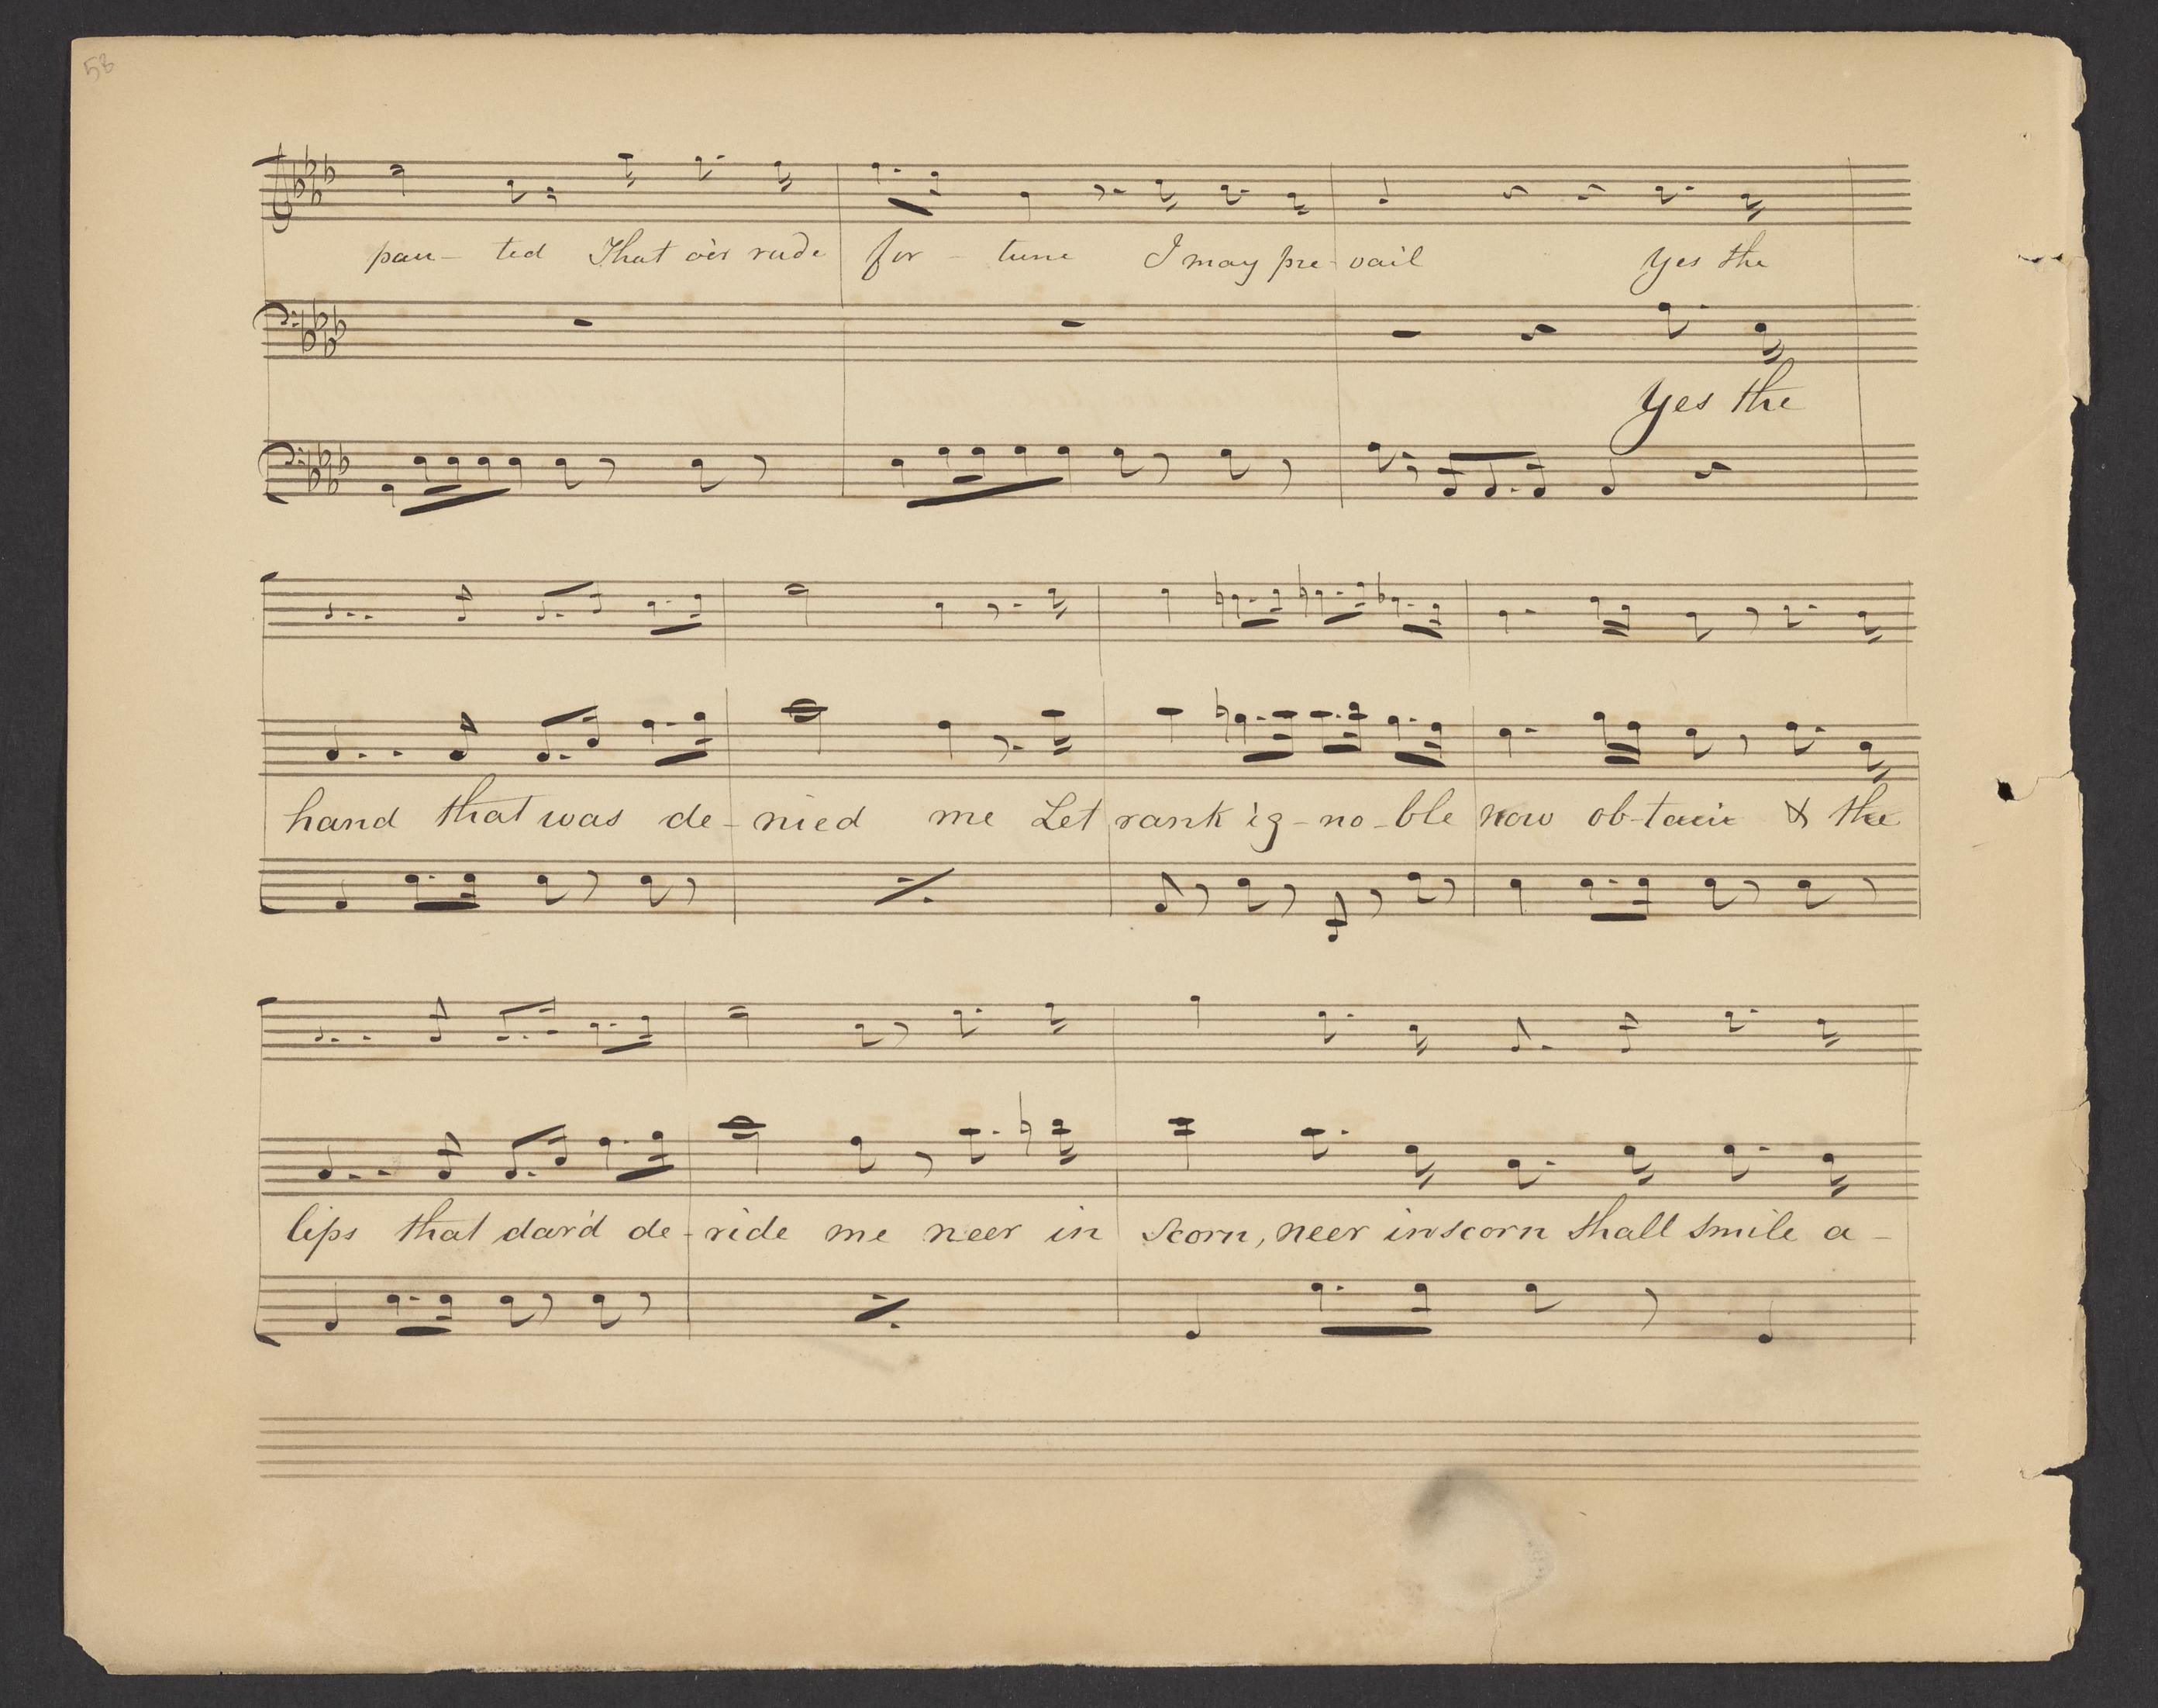 58
pau- ted That oèr rude for - tune I may pre- vail yes the
yes the
hand that was de- nied me Let rank ig-no-ble now ob-tain & the
lips that dar'd de-ride me neer in scorn, neer in scorn shall smile a-